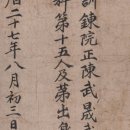 訓鍊院正陳武晟
科第十五人及第出身
曆二十七年八月初三日